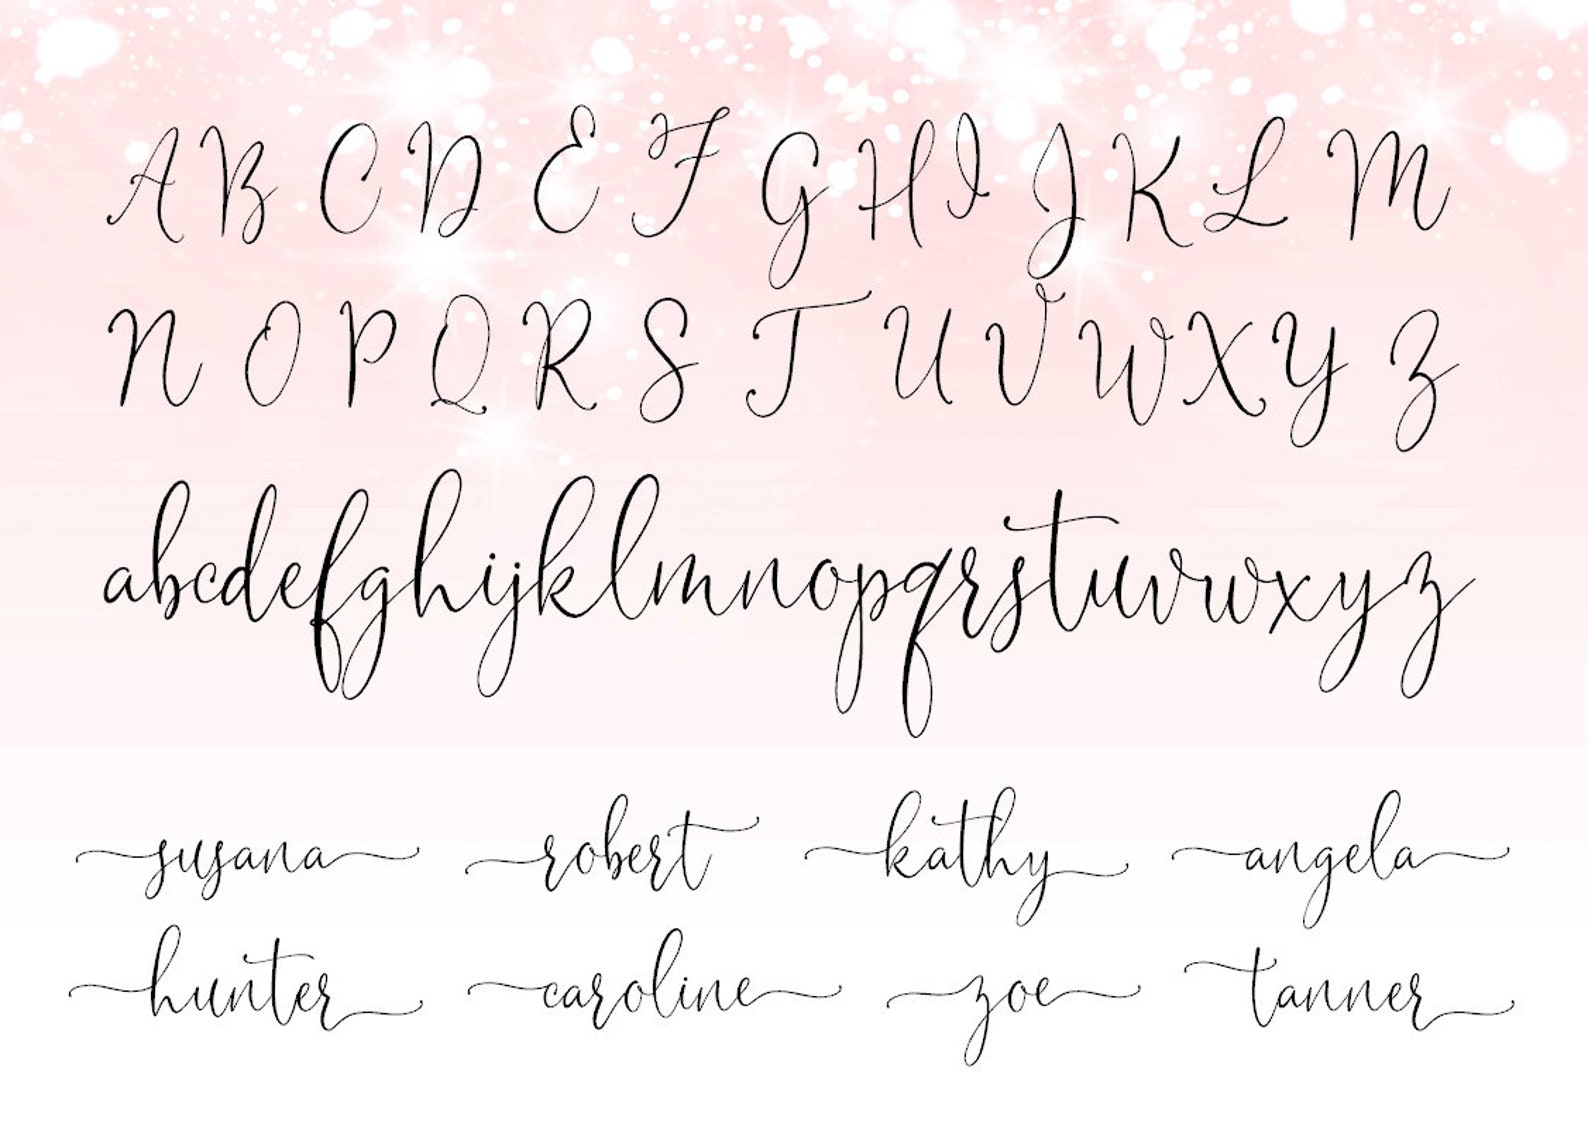 A B C D E F G H I J K L M
N O P Q R S T U V W X Y Z
abcdefghijklmnopqrstuvwxyz
susana robert kathy angela
hunter caroline zoe tanner